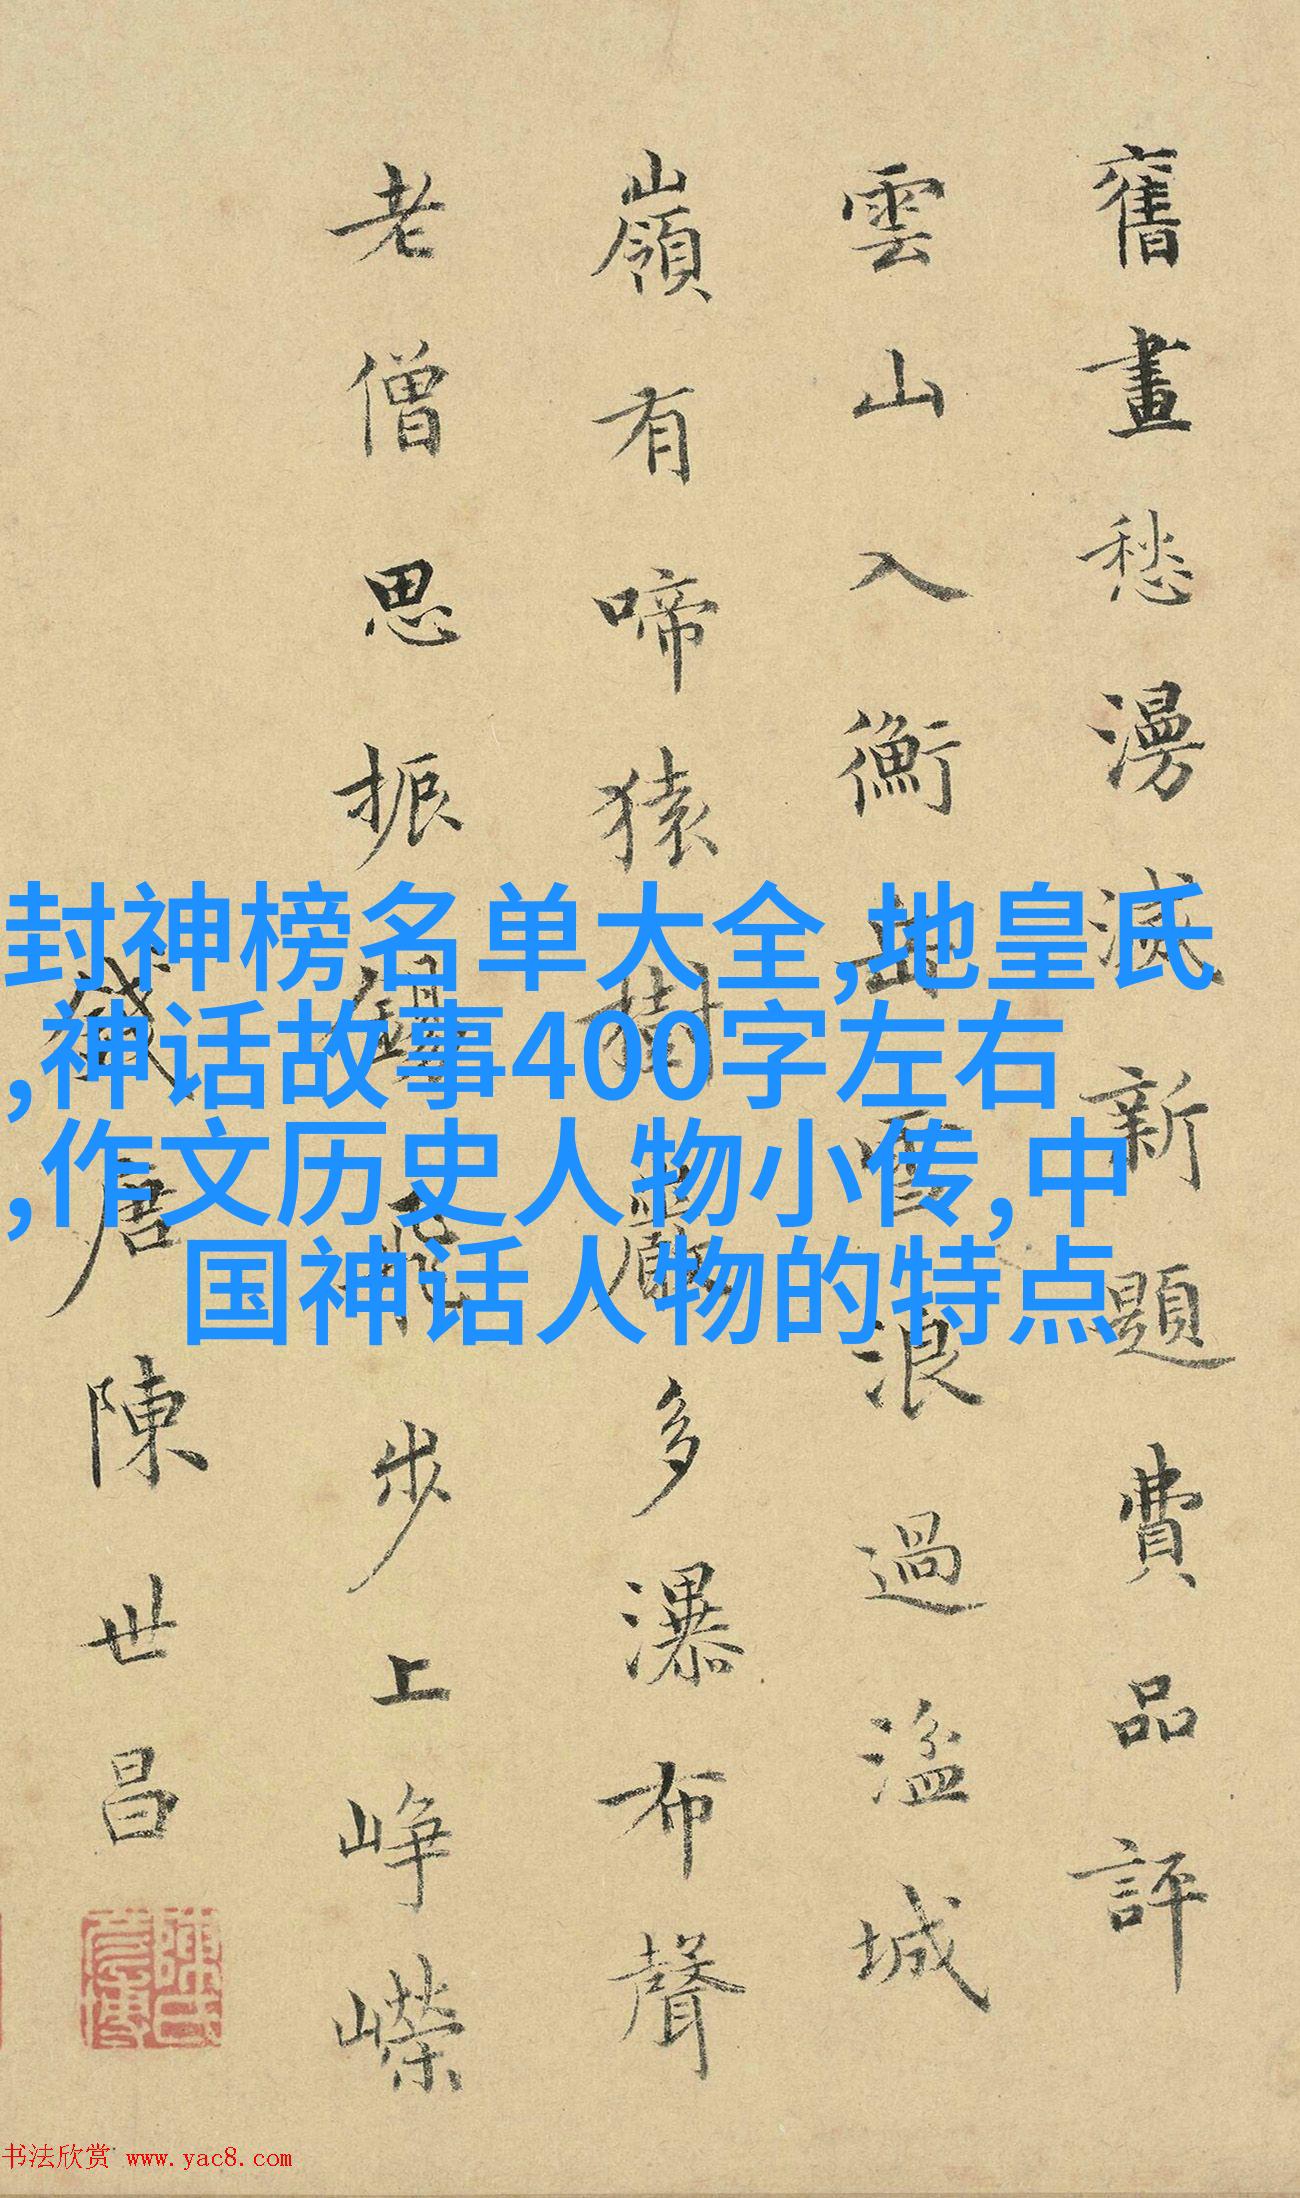 舊畫愁漫滅新題費品評
雲山入衡岳雪浪過湓城
嶺有啼猿樹巖多瀑布聲
老僧思振錫飛步上崢嶸
錢唐陳世昌
封神榜名单大全,地皇氏
,神话故事400字左右
,作文历史人物小传,中
国神话人物的特点
书法欣赏 www.yac8.com